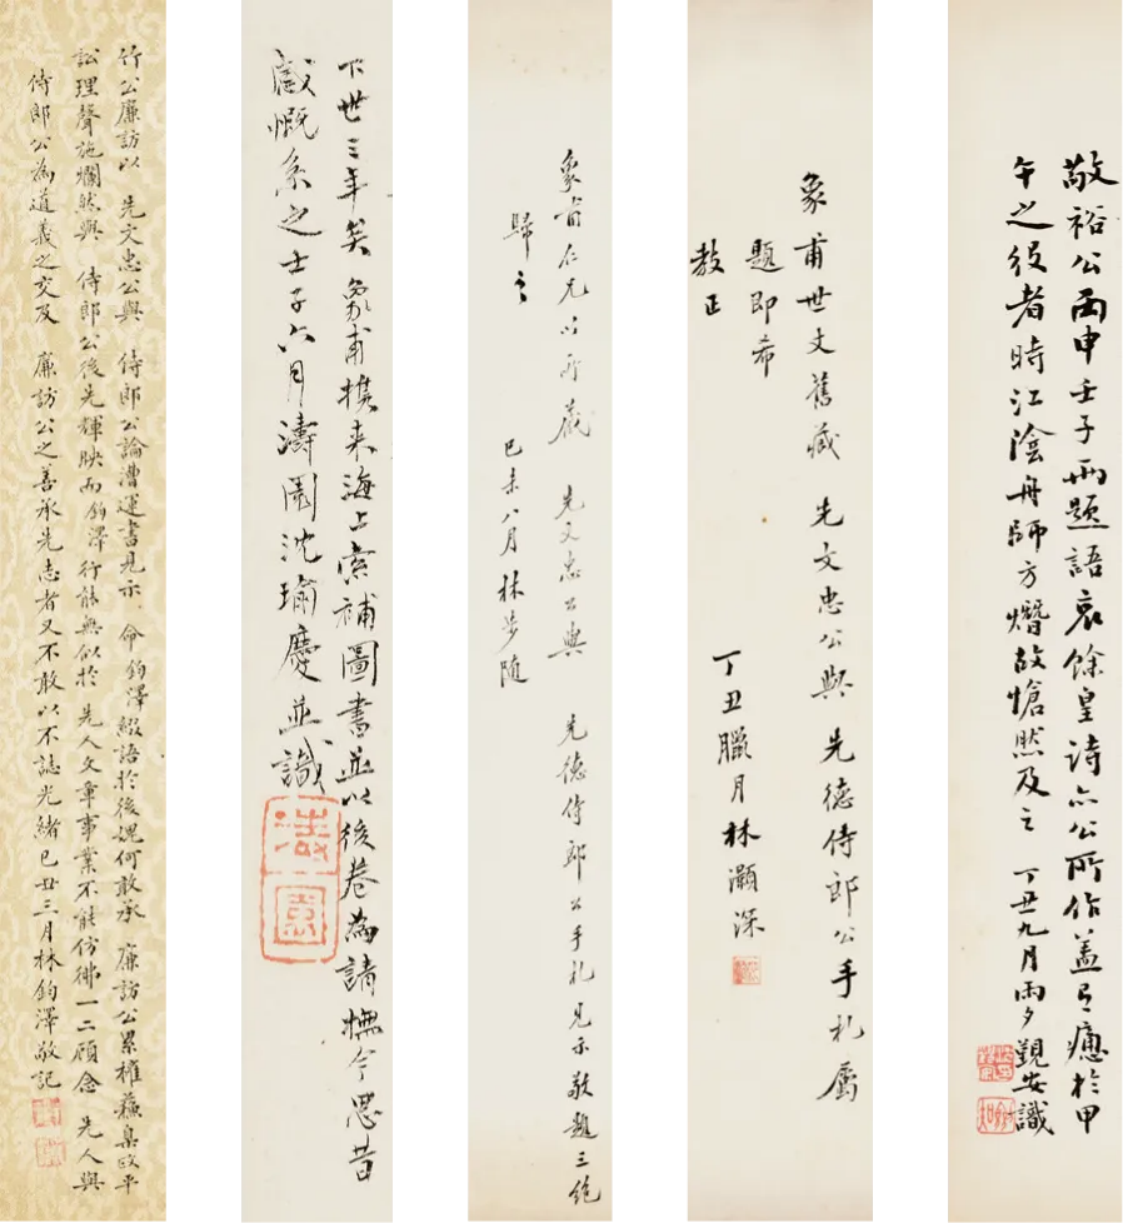 敬裕公丙申壬子兩題語哀餘皇詩亦公所作蓋有癒於甲
午之役者時江陰舟師方熸故愴然及之 丁丑九月雨夕觀安識
象甫世丈舊藏 先文忠公與 先德侍郎公手札屬
題即希
教正
丁丑臘月林灝深
象甫仁兄以所藏 先文忠公與 先德侍郎公手札見示敬題三絕
歸之 己未八月林步隨
下世三年矣象甫攜来海上索補圖書並以後卷為請撫今思昔
感慨系之壬子六月濤園沈瑜慶並識
濤園
竹公廉訪以 先文忠公與 侍郎公論漕運書見示 命鈞澤綴語於後媿何敢承 廉訪公累權蘇臬政平
訟理聲施爛然與 侍郎公後先輝映而鈞澤行能無似於 先人文章事業不能仿彿一二顧念 先人與
侍郎公為道義之交及 廉訪公之善承先志者又不敢以不誌光緒己丑三月林鈞澤敬記